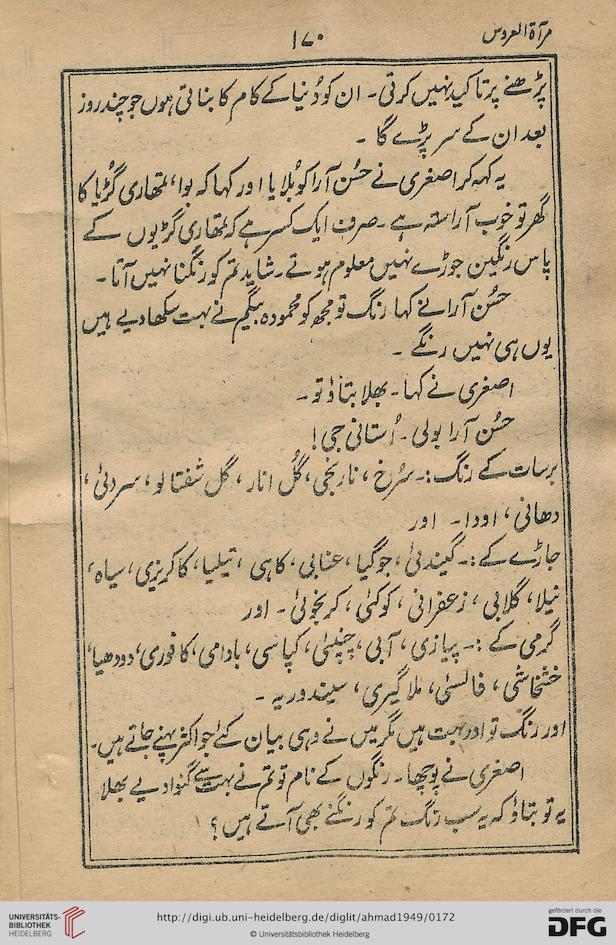 مرآۃ العروس
۱۷۰
پڑھنے پر تاکید نہیں کرتی۔ ان کو دُنیا کے کام کا بناتی ہوں جو چند روز
بعد ان کے سر پڑے گا ۔
یہ کہہ کر اصغری نے حسُن آرا کو بُلایا اور کہا کہ بوا، تمھاری گڑیا کا
گھر تو خوب آراستہ ہے ۔ صرف ایک کسر ہے کہ تمھاری گڑیوں کے
پاس رنگین جوڑے نہیں معلوم ہوتے۔ شاید تم کو رنگنا نہیں آتا ۔
حسُن آرا نے کہا رنگ تو مجھ کو محمودہ بیگم نے بہت سکھا دیے ہیں
یوں ہی نہیں رنگے ۔
اصغری نے کہا ۔ بھلا بتاؤ تو ۔
حسُن آرا بولی ۔ اُستانی جی!
برسات کے رنگ :۔ سُرخ ، نارنجی، گُل انار ، گل شفتالو ، سردئی ،
دھانی ، اودا ۔ اور
جاڑے کے :۔ گیندئی ، جوگیا، عنابی ، کاہی ، تیلیا، کاکریزی، سیاہ،
نیلا ، گلابی ، زعفرانی ، کوکئی ، کرنجوئی ۔ اور
گرمی کے :۔ پیازی ، آبی، چنپئی، کپاسی، بادامی، کافوری، دودھیا،
خشخاشی ، فالسئی، ملاگیری، سیندوریہ ۔
اور رنگ تو اور بہت ہیں مگر میں نے وہی بیان کئے جو اکثر پہنے جاتے ہیں۔
اصغری نے پوچھا ۔ رنگوں کے نام تو تم نے بہت سے گنوا دیے بھلا
یہ تو بتاؤ کہ یہ سب رنگ تم کو رنگنے بھی آتے ہیں ؟
UNIVERSITÄTS-
BIBLIOTHEK
HEIDELBERG
http://digi.ub.uni-heidelberg.de/diglit/ahmad1949/0172
© Universitätsbibliothek Heidelberg
gefördert durch die
DFG